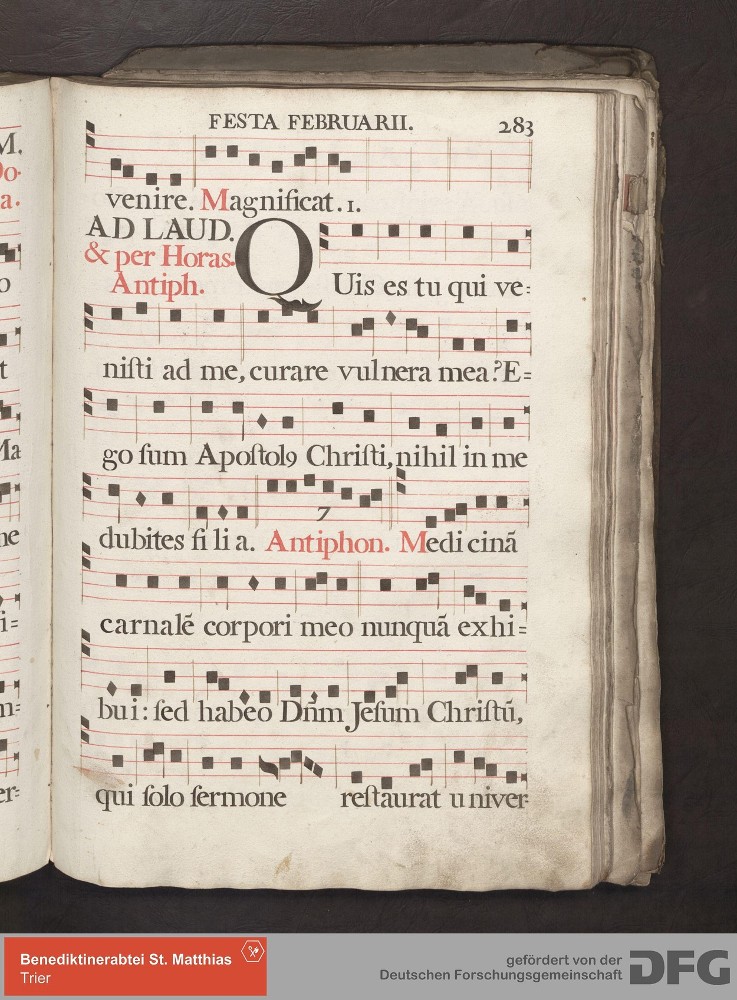 FESTA FEBRUARII. 283
venire. Magnificat. 1.
AD LAUD.
& per Horas.
Antiph.
QUis es tu qui ve:
niſti ad me, curare vulnera mea? E=
go ſum Apoſtolꝰ Chriſti, nihil in me
7
dubites fi li a. Antiphon. Medi cinã
carnalẽ corpori meo nunquã exhi=
bui: ſed habeo Dn̄m Jeſum Chriſtũ,
qui ſolo ſermone reſtaurat univer=
M.
a.
o
t
Ma
ne
i=
m=
er=
Benediktinerabtei St. Matthias
Trier
gefördert von der
Deutschen Forschungsgemeinschaft
DFG